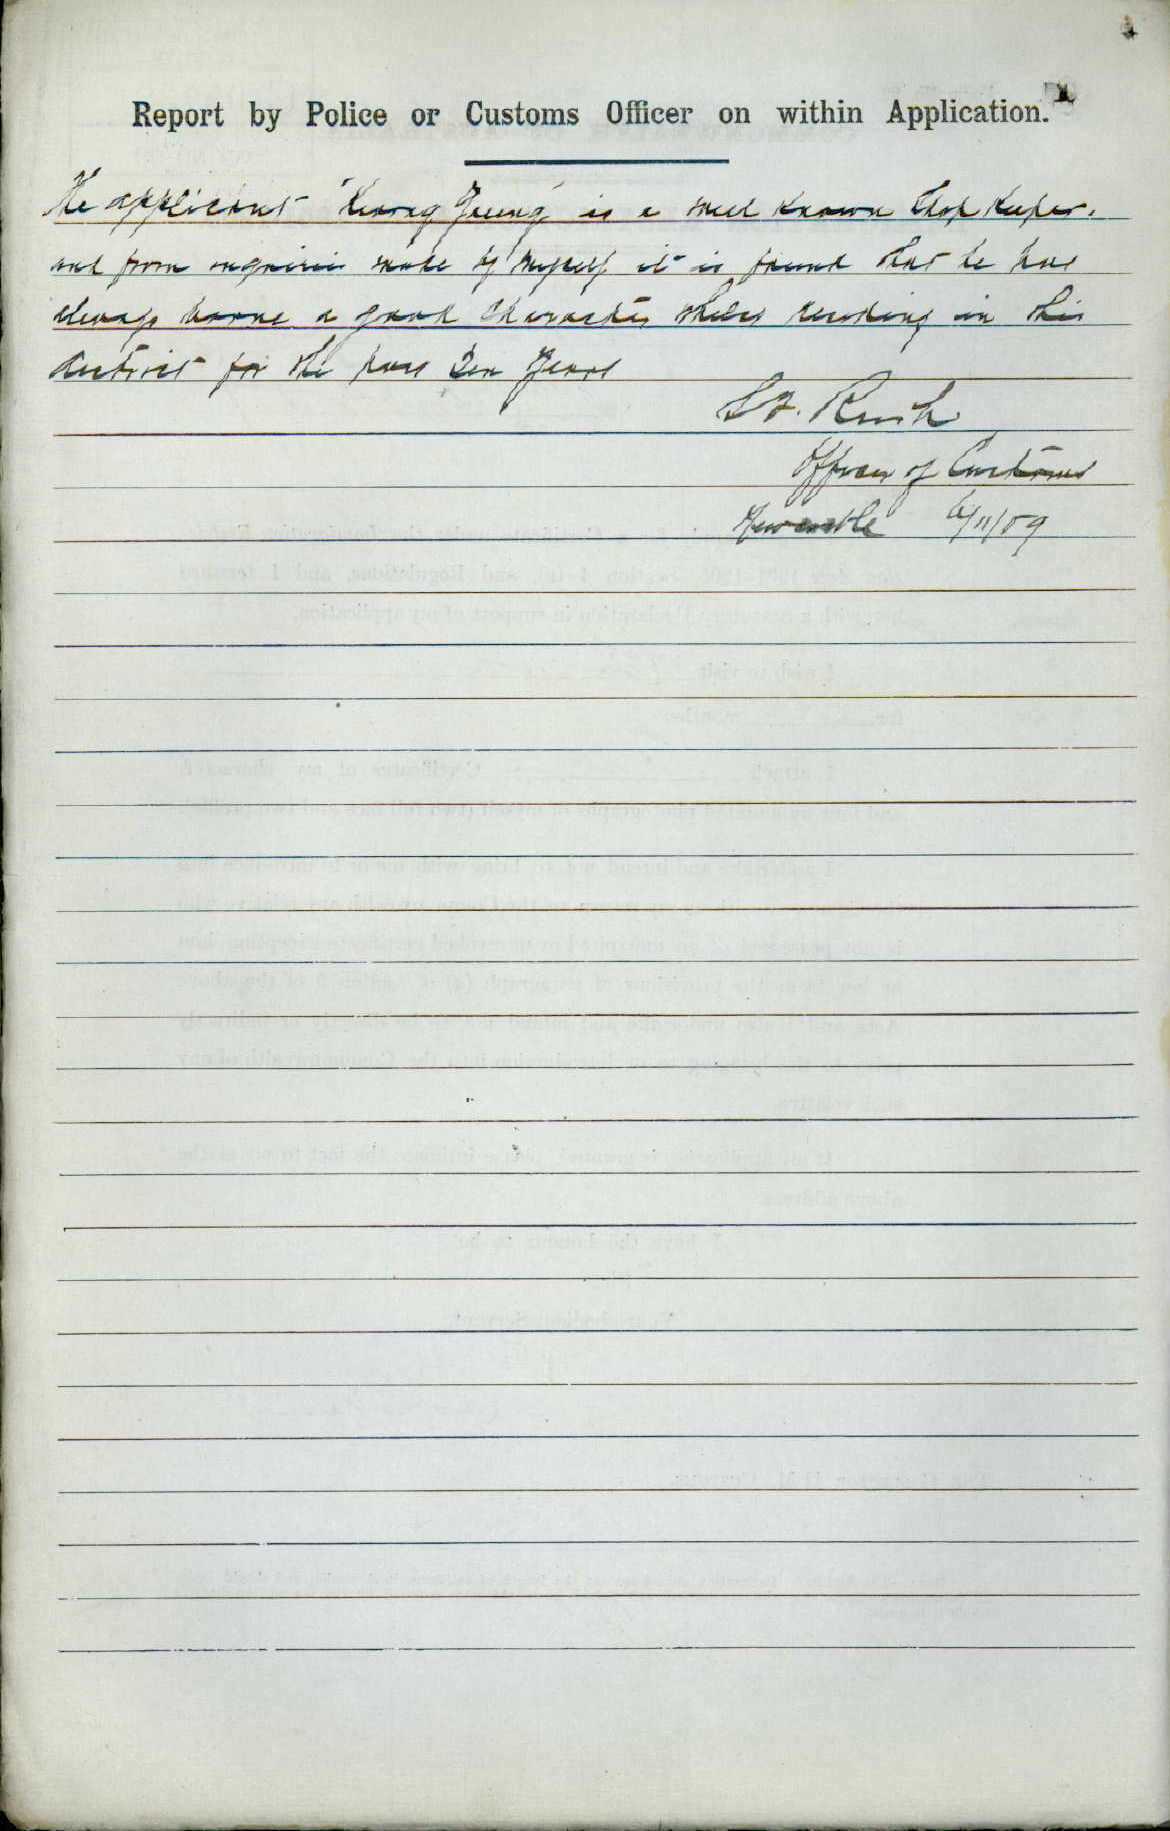 Report by Police or Customs Officer on within Application.
The applicant "Young" is a well known Shop Keeper.
and from inquiries made by myself it is found that he has
always borne a good character whilst residing in this
district for the past Ten Years
Officer of Customs
Newcastle 6/11/09